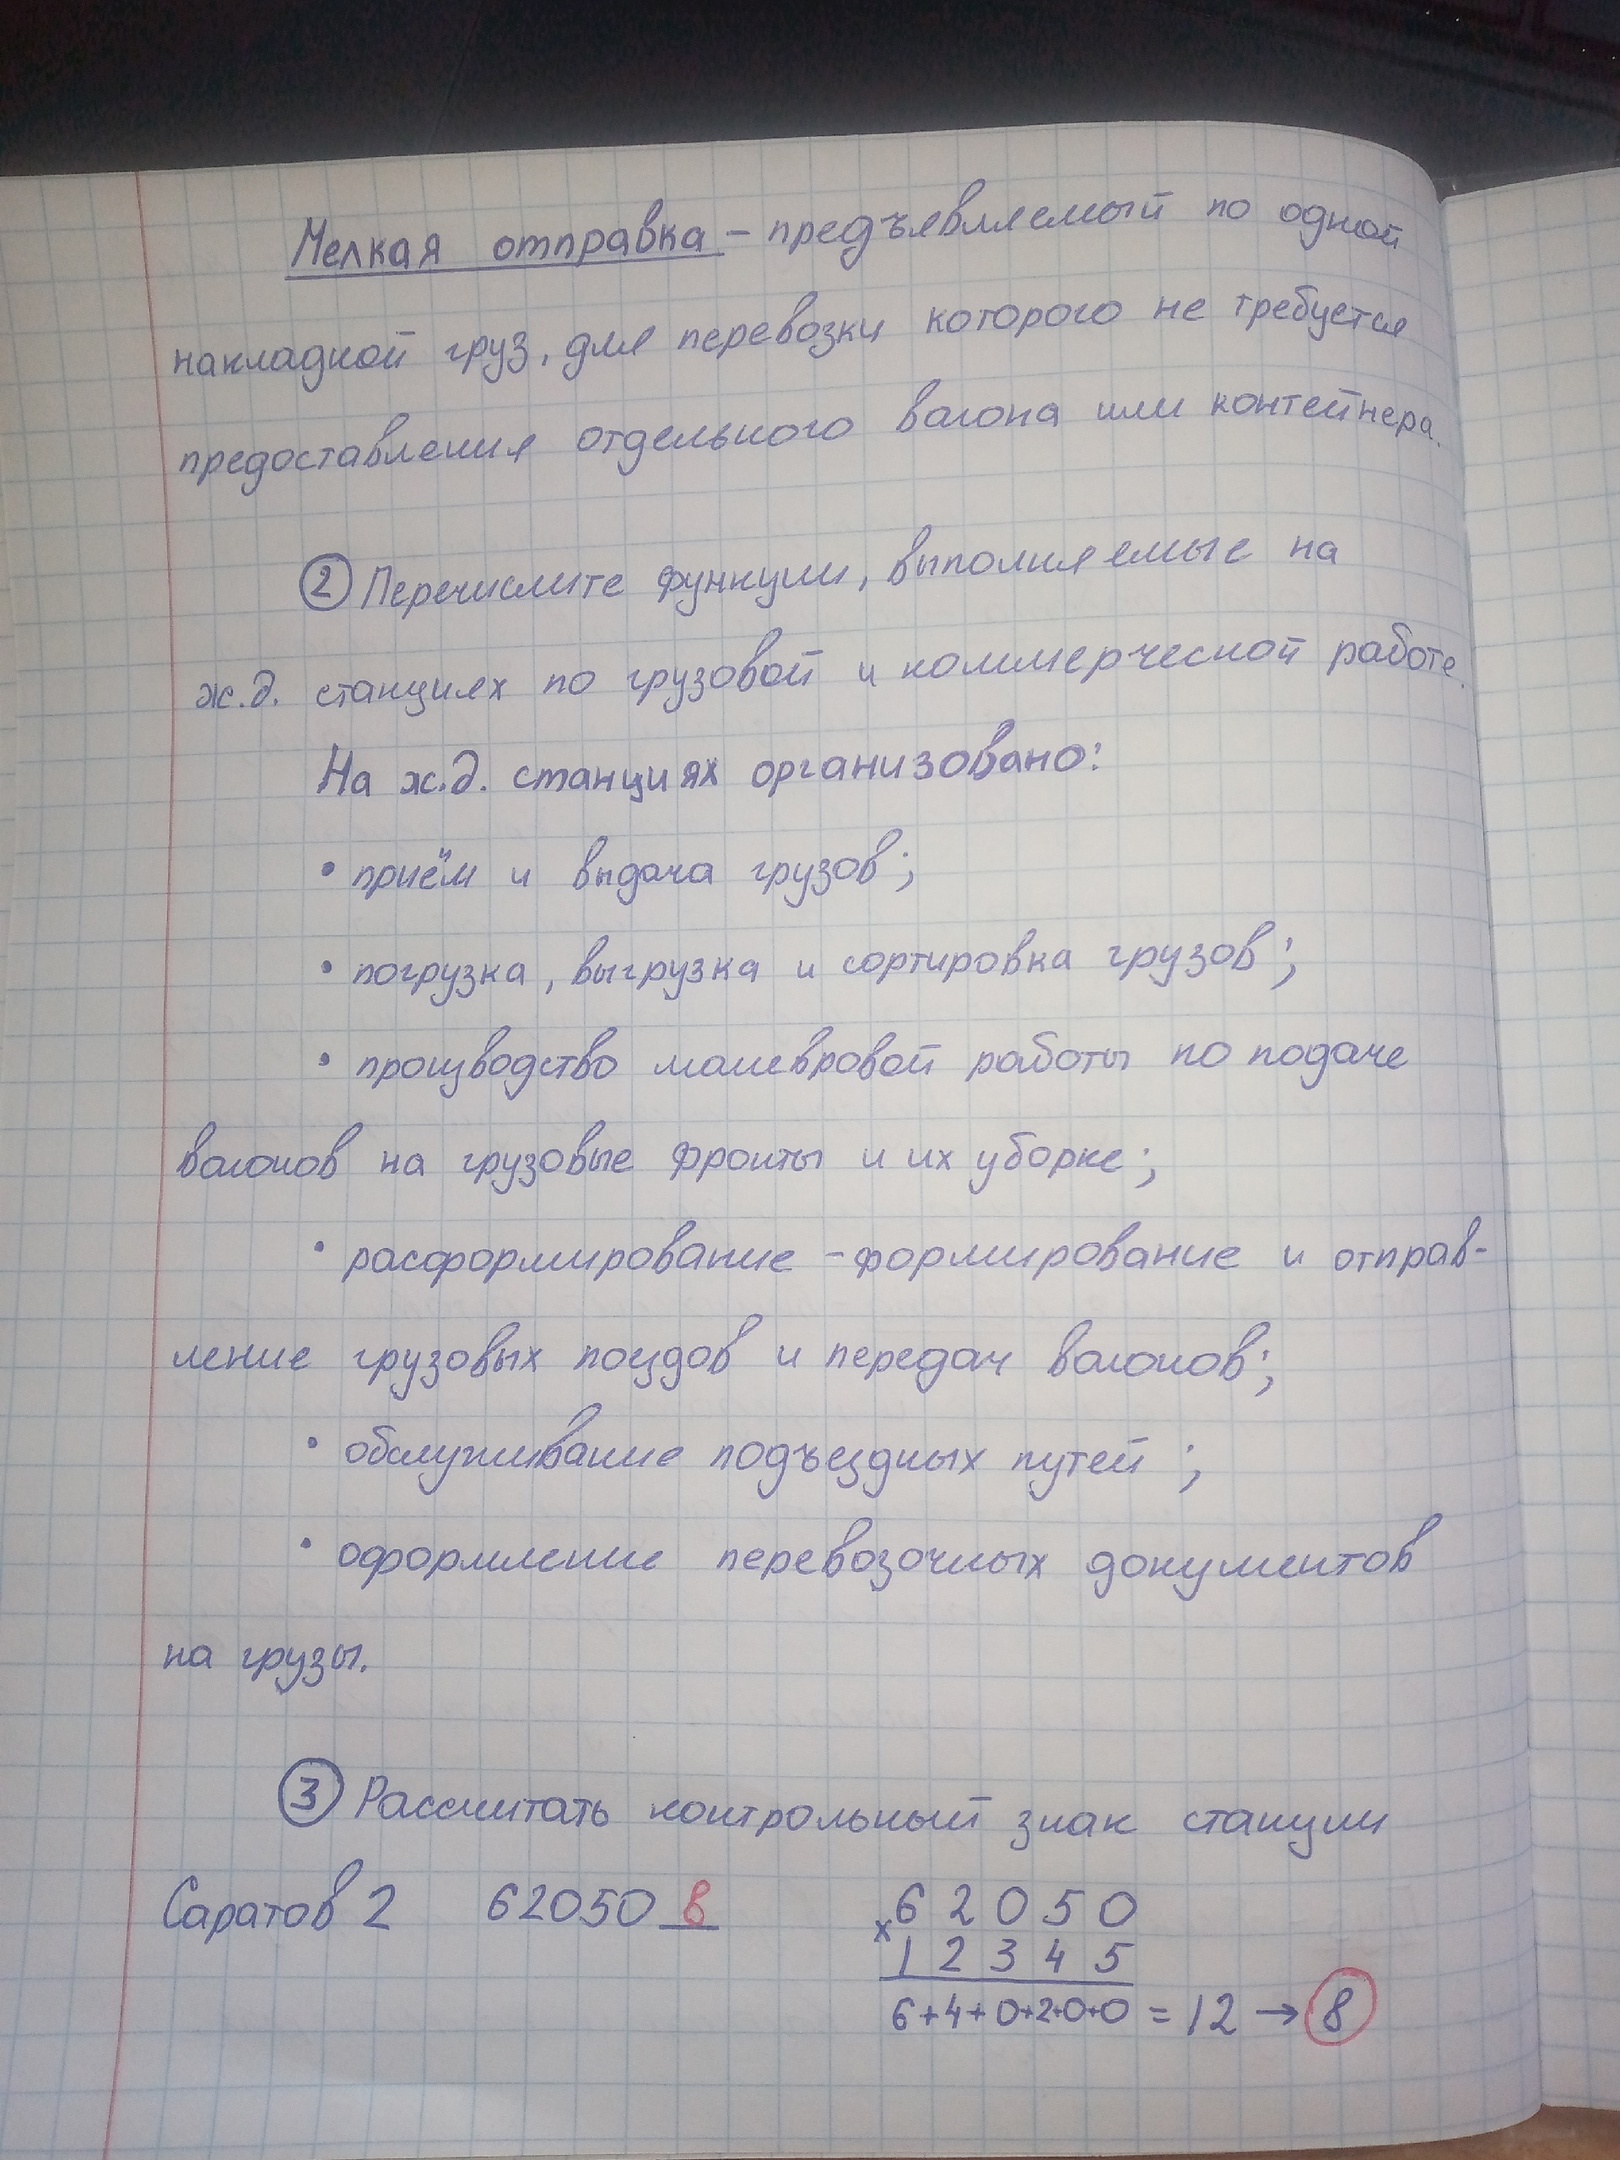 Мелкая отправка – предъявляемый по одной
накладной груз, для перевозки которого не требуется
предоставления отдельного вагона или контейнера.
② Перечислите функции, выполняемые на
ж.д. станциях по грузовой и коммерческой работе.
На ж.д. станциях организовано:
• приём и выдача грузов;
• погрузка, выгрузка и сортировка грузов;
• производство маневровой работы по подаче
вагонов на грузовые фронты и их уборке;
• расформирование - формирование и отправ-
ление грузовых поездов и передач вагонов;
• обслуживание подъездных путей;
• оформление перевозочных документов
на грузы.
③ Рассчитать контрольный знак станции
Саратов 2 62050 8
62050
x
12345
6+4+0+2+0+0 = 12 → 8